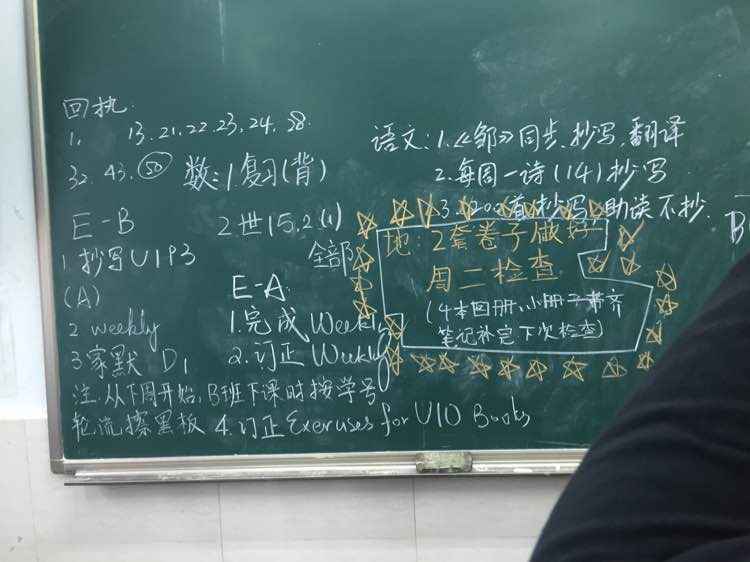 回执.
1. 13. 21. 22. 23. 24. 28.
32. 43. 50
数: 1. 复习(背)
2. 世15, 2.(1)
全部
E-B
1. 抄写U1P3
(A)
2 weekly
3 家默 D1
注: 从下周开始, B班下课时按学号
轮流擦黑板
E-A.
1. 完成 Weekly
2. 订正 Weekly
4. 订正 Exercises for U10 Books
语文: 1.《邹》同步. 抄写, 翻译
2. 每周一诗(14)抄写
3. 抄写 助读不抄.
地: 2套卷子做好
周二检查
(4本图册、小册子带齐
笔记补完下次检查)